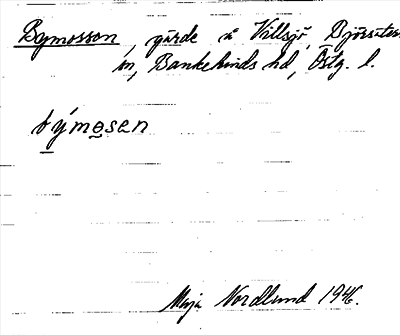 Bymossen, gärde å Villsjö, Bjärsäters
sn, Bankekinds hd, Östg. l.
by´mosen
Maja Nordlund 1946.